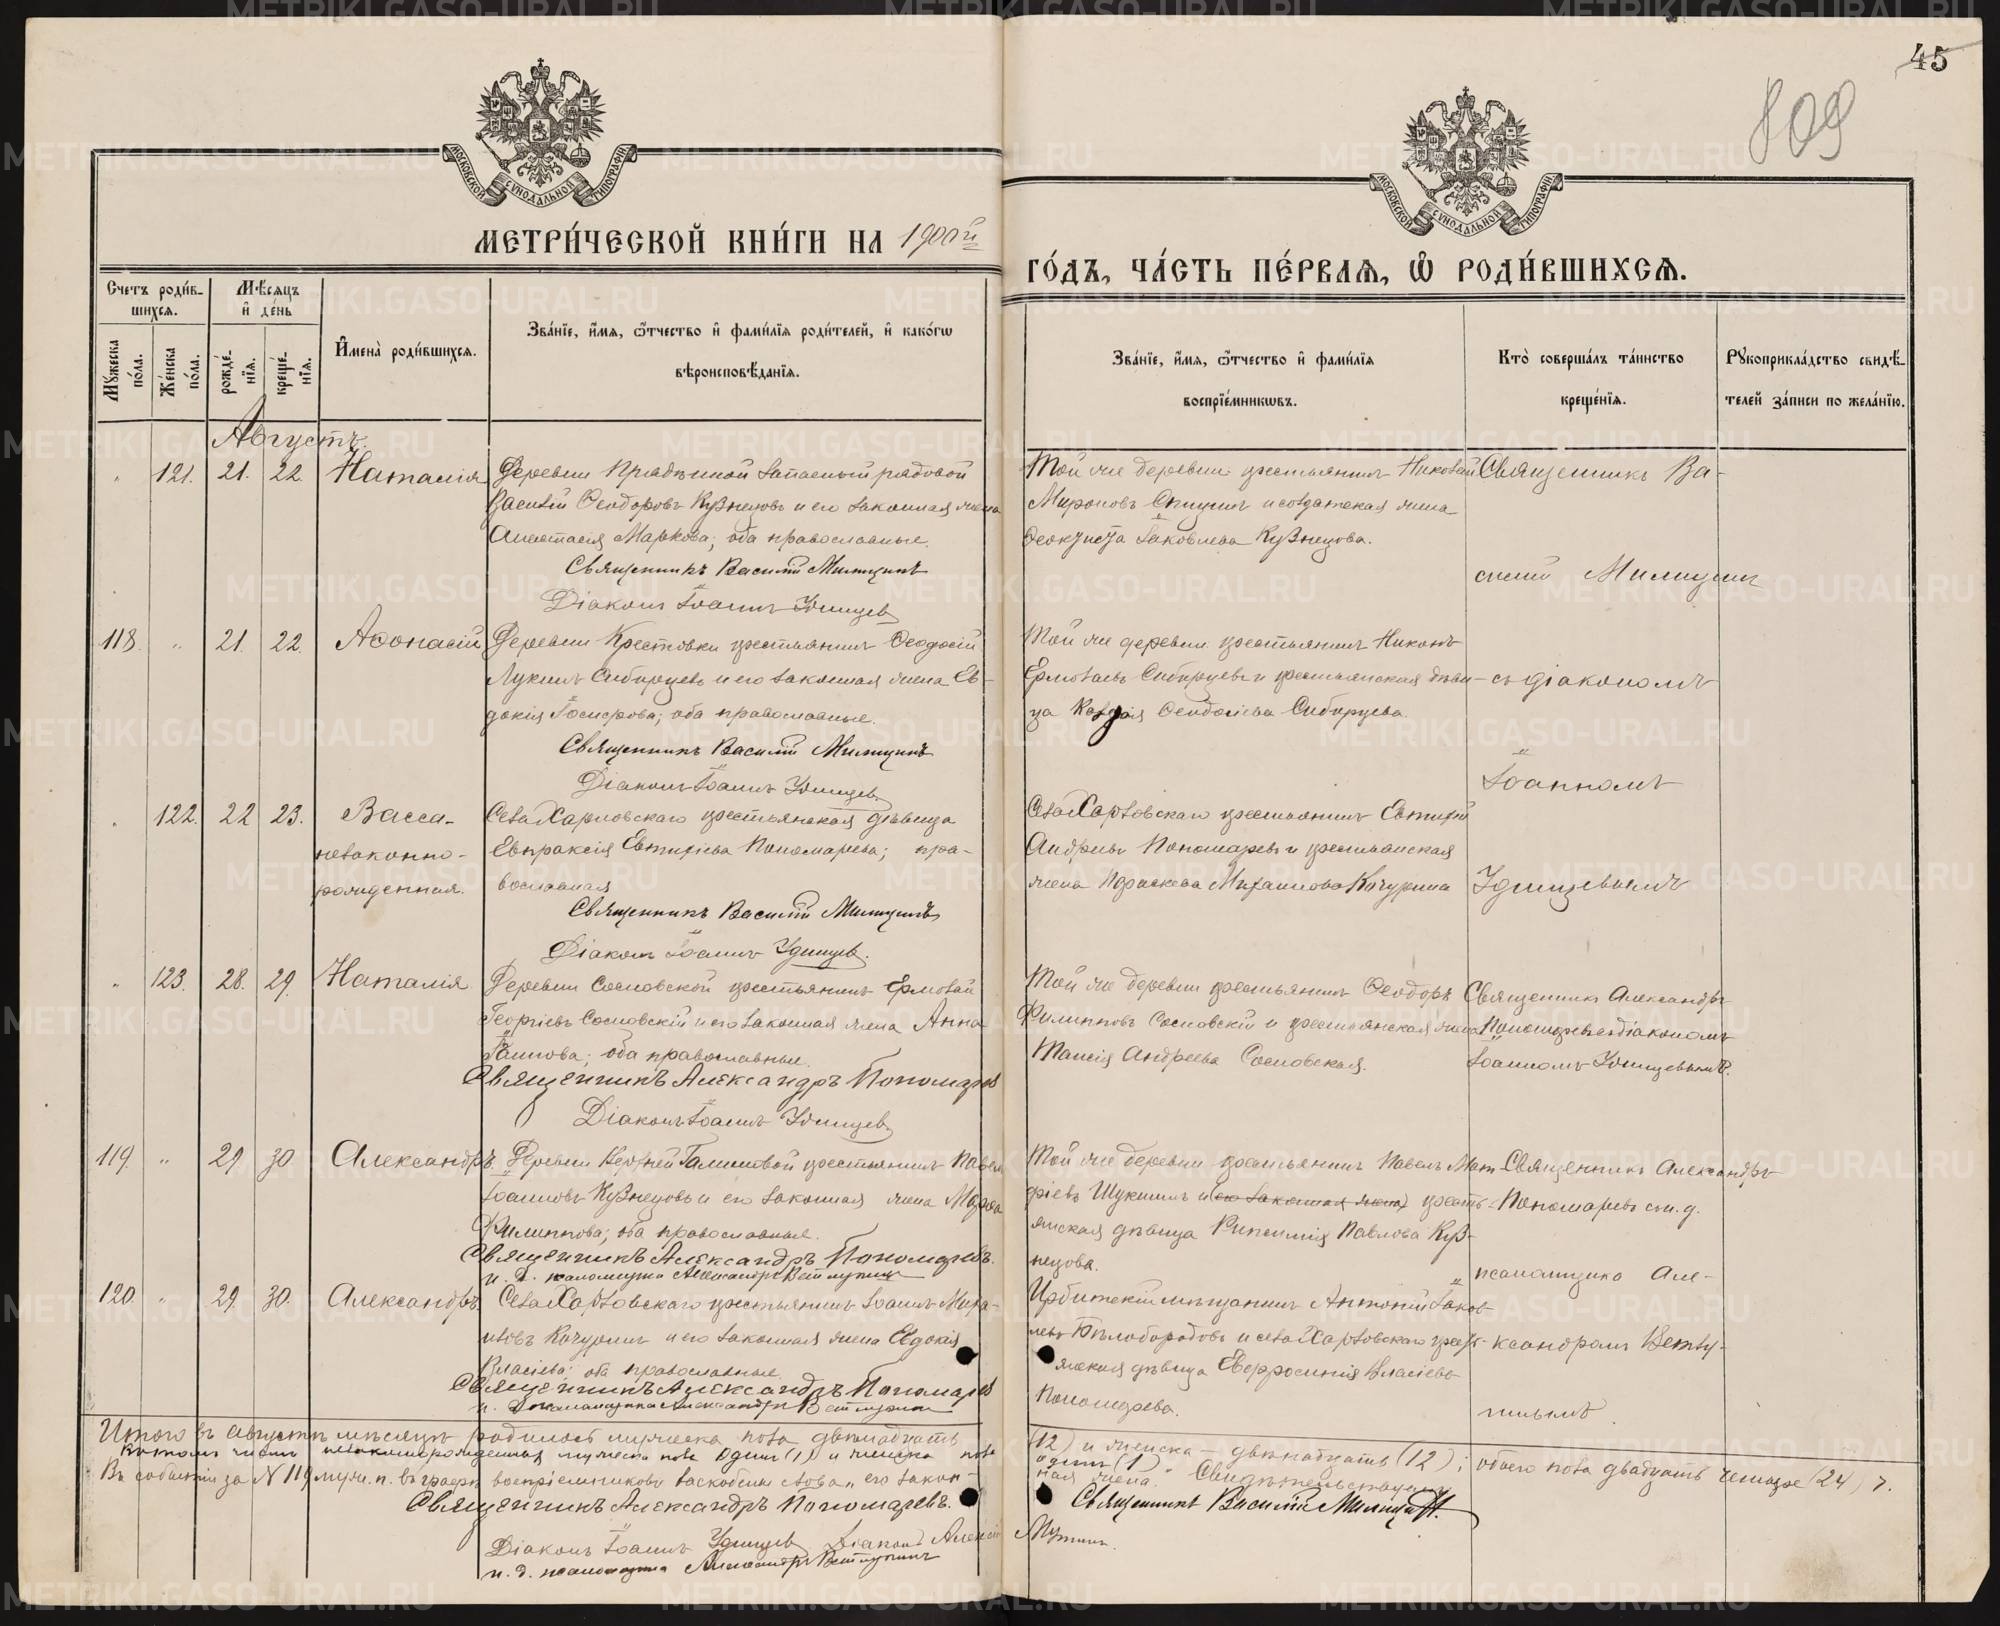 45
809
МОСКОВСКОЙ СУНОДАЛЬНОЙ ТИПОГРАФІИ
МОСКОВСКОЙ СУНОДАЛЬНОЙ ТИПОГРАФІИ
МЕТРИ́ЧЕСКОЙ КНИ́ГИ НА 1900й
ГО́ДЪ, ЧА́СТЬ ПЕ́РВАЯ, Ѡ҆ РОДИ́ВШИХСЯ.
Счетъ роди́в-
шихся.
Мѣ́сяцъ
и҆ де́нь
Мꙋ́жеска по́ла.
Же́нска по́ла.
рожде́-
нїя.
креще́-
нїя.
И҆мена̀ роди́вшихся.
Зва́нїе, и҆́мя, ѻ҆́тчество и҆ фами́лїя роди́телей, и҆ како́гѡ
вѣроисповѣ́данїя.
Зва́нїе, и҆́мя, ѻ҆́тчество и҆ фами́лїя
воспрїе́мникѡвъ.
Кто̀ соверша́лъ та́инство
креще́нїя.
Рꙋкоприкла́дство свидѣ́-
телей за́писи по жела́нїю.
Августъ.
" 121. 21. 22. Наталія
Деревни Прядѣиной запасный рядовой
Василій Ѳеодоровъ Кузнецовъ и его законная жена
Анастасія Маркова; оба православные.
Священникъ Василій Милицинъ
Діаконъ Іоаннъ Удинцев
Той же деревни крестьянинъ Николай
Мироновъ Спицинъ и солдатская жена
Ѳеоктиста Іаковлева Кузнецова.
Священникъ Ва-
силій Милицинъ
118. " 21. 22. Аѳонасій
Деревни Крестовки крестьянинъ Ѳеодосій
Лукинъ Сибирцевъ и его законная жена Ев-
докія Іосифова; оба православные.
Священникъ Василій Милицинъ
Діаконъ Іоаннъ Удинцев
Той же деревни крестьянинъ Никонъ
Ермолаевъ Сибирцевъ и крестьянская дѣви-
ца Ѳеодосіева Сибирцева.
съ діакономъ
Іоанномъ
" 122. 22 23. Васса-
незаконно-
рожденная.
Села Харловскаго крестьянская дѣвица
Евпраксія Евтихіева Пономарева; пра-
вославная
Священникъ Василій Милицинъ
Діаконъ Іоаннъ Удинцев.
Села Харловскаго крестьянинъ Евтихій
Андреевъ Пономаревъ и крестьянская
жена Параскева Михаилова Качурина
Удинцевымъ
" 123. 28. 29. Наталія
Деревни Сосновской крестьянинъ Ермолай
Георгіевъ Сосновскій и его законная жена Анна
оба православные.
Священникъ Александръ Пономарев
Діаконъ Іоаннъ Удинцев
Той же деревни крестьянинъ Ѳеодоръ
Филипповъ Сосновскій и крестьянская жена
Таисія Андреева Сосновская.
Священникъ Александръ
Пономаревъ съ діакономъ
Іоанномъ Удинцевымъ.
119. " 29 30 Александръ.
Деревни крестьянинъ Павелъ
Іоанновъ Кузнецовъ и его законная жена Марѳа
Филиппова; оба православные.
Священникъ Александръ Пономаревъ.
и. д. псаломщика Александръ Ветлугинъ
Той же деревни крестьянинъ Павелъ Мат-
ѳіевъ Шукшинъ и (его законная жена) кресть-
янская дѣвица Рипсимія Павлова Куз-
нецова.
Священникъ Александръ
Пономаревъ съ и. д.
псаломщика Але-
120. " 29. 30. Александръ.
Села Харловскаго крестьянинъ Іоаннъ Миха-
иловъ Качуринъ и его законная жена Евдокія
Власіева; оба православные.
Священникъ Александръ Пономарев
и. д. псаломщика Александръ Ветлугинъ
Ирбитскій мѣщанинъ Антоній Іаков-
левъ Бѣлобородовъ и села Харловскаго кресть-
янская дѣвица Евфросинія Власіева
Пономарева.
ксандромъ Ветлу-
гинымъ.
Итого въ августѣ мѣсяцѣ родилось мужеска пола двѣнадцать
(12) и женска - двѣнадцать (12); обоего пола двадцать четыре (24).
Въ томъ числѣ незаконнорожденныхъ мужеска пола одинъ (1) и женска пола
одинъ (1)
Въ событіи за № 119 муж. п. въ графѣ воспріемниковъ заскоблены слова „его закон-
ная жена." Свидѣтельствуемъ
Священникъ Александръ Пономаревъ.
Священникъ Василій Милицинъ.
Діаконъ Іоаннъ Удинцев Діаконъ Алексій
и. д. псаломщика Александръ Ветлугинъ